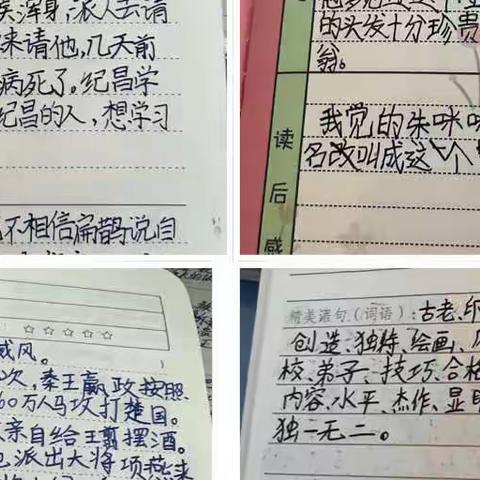 浑身,派人去请
来请他,几天前
病死了。纪昌学
纪昌的人,想学习
不相信扁鹊说自
的头发十分珍贵
翁。
读后感
我觉的朱咪
名改叫成这个
威风。
次,秦王嬴政按照
60万人马攻打楚国。
亲自给王翦摆酒。
派出大将项燕来
精美语句(词语):古老、印
创造、独特、绘画、
校、弟子、技巧、合格
内容、水平、杰作、显明
独一无二。